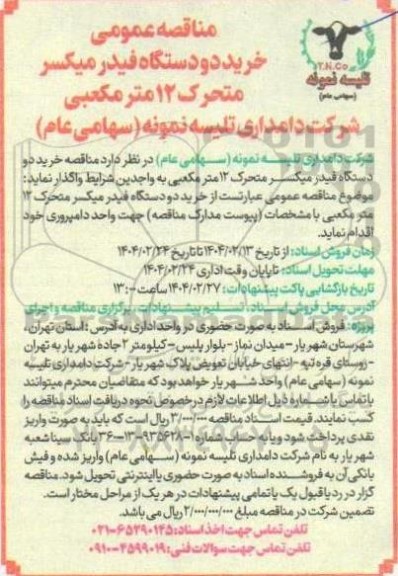 مناقصه عمومی
خرید دو دستگاه فیدر میکسر
متحرک ۱۲ متر مکعبی
شرکت دامداری تلیسه نمونه (سهامی عام)
T.N.Co
تلیسه نمونه
(سهامی عام)
شرکت دامداری تلیسه نمونه (سهامی عام) در نظر دارد مناقصه خرید دو
دستگاه فیدر میکسر متحرک ۱۲ متر مکعبی به واجدین شرایط واگذار نماید:
موضوع مناقصه عمومی عبارتست از خرید دو دستگاه فیدر میکسر متحرک ۱۲
متر مکعبی با مشخصات (پیوست مدارک مناقصه) جهت واحد دامپروری خود
اقدام نماید.
زمان فروش اسناد: از تاریخ ۱۴۰۴/۰۲/۱۳ تا تاریخ ۱۴۰۴/۰۲/۲۴
مهلت تحویل اسناد: تا پایان وقت اداری ۱۴۰۴/۰۲/۲۴
تاریخ بازگشایی پاکت پیشنهادات: ۱۴۰۴/۰۲/۲۷ ساعت ۱۳:۰۰
آدرس محل فروش اسناد، تسلیم پیشنهادات، برگزاری مناقصه و اجرای
پروژه: فروش اسناد به صورت حضوری در واحد اداری به آدرس: استان تهران،
شهرستان شهریار - میدان نماز - بلوار پلیس - کیلومتر ۲ جاده شهریار به تهران
- روستای قره تپه - انتهای خیابان تعویض پلاک شهریار - شرکت دامداری تلیسه
نمونه (سهامی عام) واحد شهریار خواهد بود که متقاضیان محترم میتوانند
با تماس با شماره ذیل اطلاعات لازم درخصوص نحوه دریافت اسناد مناقصه را
کسب نمایند. قیمت اسناد مناقصه ۳/۰۰۰/۰۰۰ ریال است که باید به صورت واریز
نقدی پرداخت شود و یا به حساب شماره بانک سینا شعبه
شهریار به نام شرکت دامداری تلیسه نمونه (سهامی عام) واریز شده و فیش
بانکی آن به فروشنده اسناد به صورت حضوری یا اینترنتی تحویل شود. مناقصه
گزار در رد یا قبول یک یا تمامی پیشنهادات در هر یک از مراحل مختار است.
تضمین شرکت در مناقصه مبلغ ۲/۰۰۰/۰۰۰/۰۰۰ ریال می باشد.
تلفن تماس جهت اخذ اسناد: ۰۲۱-۶۵۲۹۰۱۴۵
تلفن تماس جهت سوالات فنی: ۰۹۱۰-۴۵۹۹۰۱۹